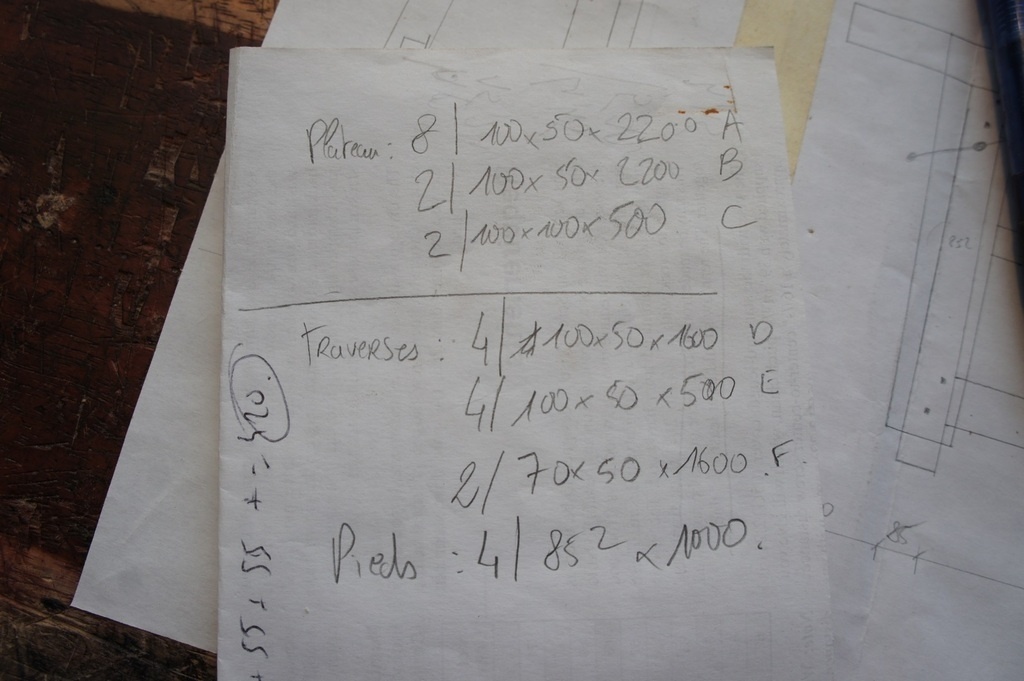 Plateau: 8 | 100x50x2200 A
2 | 100x50x2200 B
2 | 100x100x500 C
Traverses: 4 | 100x50x1600 D
4 | 100x50x500 E
2 / 70x50x1600. F.
Pieds: 4 | 85² x 1000.
+ 55 + 55
85